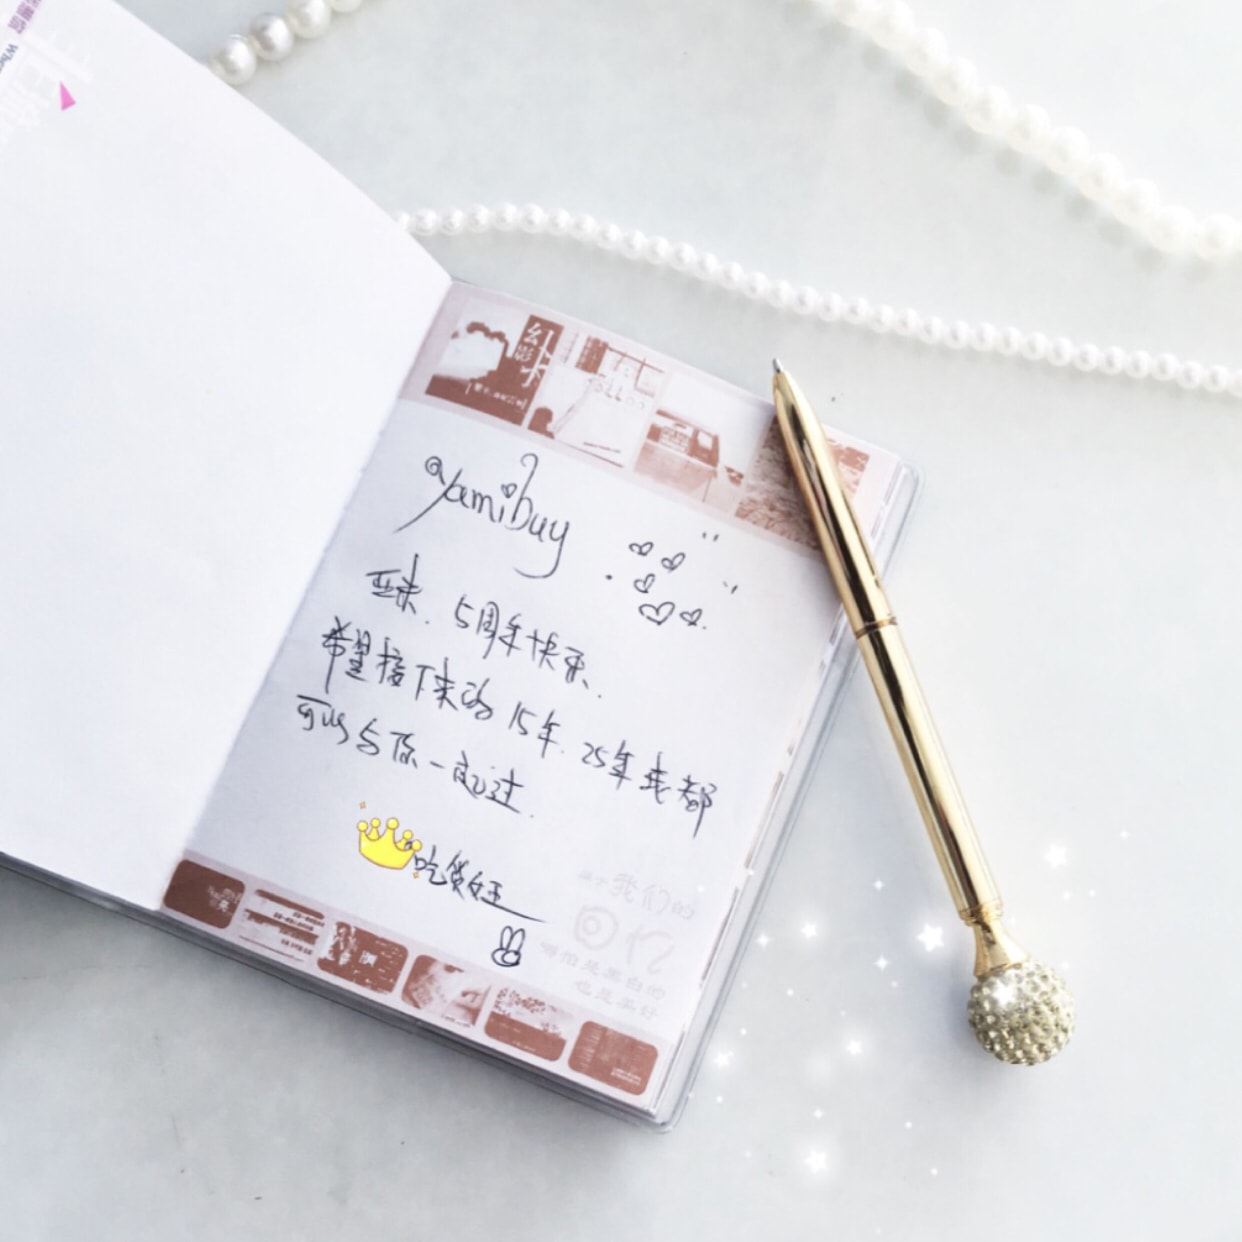 幻影卡
@yamibuy
亚米.5周年快乐.
希望接下来的15年.25年我都
可以与你一起过.
吃货女王
我们的
回忆
哪怕是黑白的
也是美好